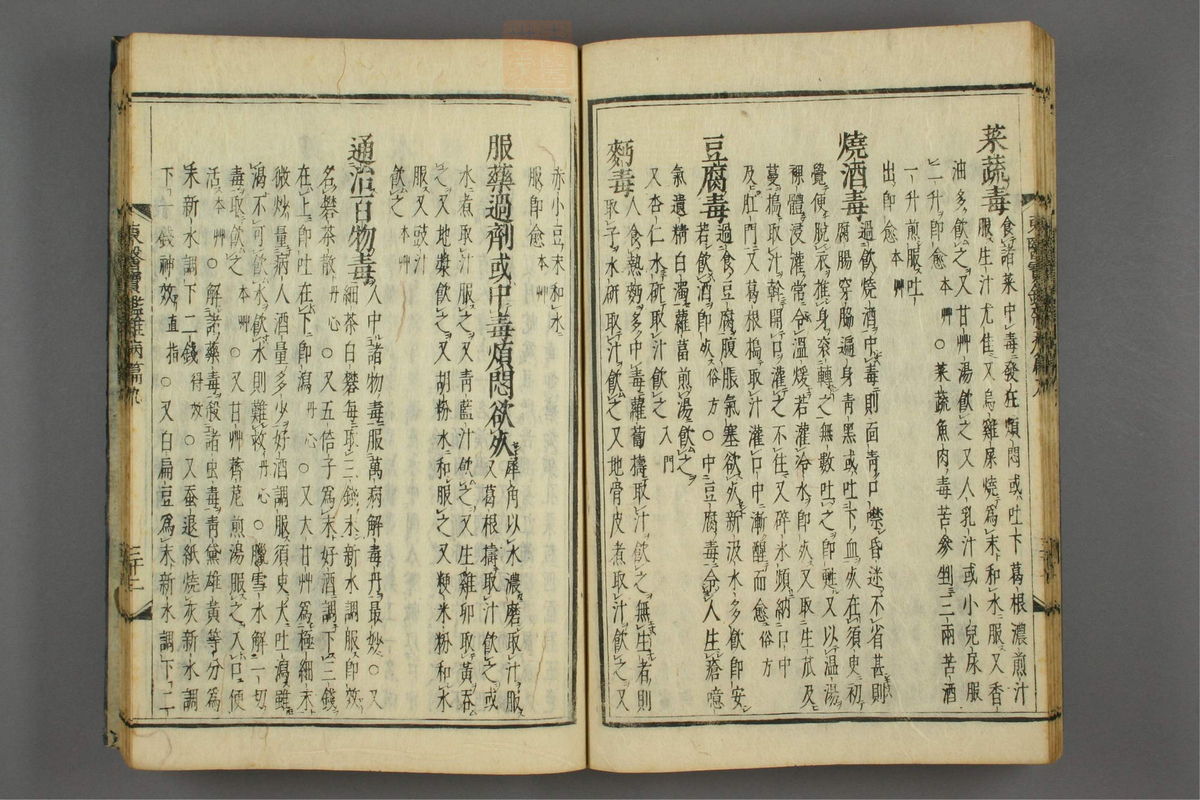 菜蔬毒食諸菜中毒發在煩悶或吐下葛根濃煎汁
服生汁尤佳又烏雞屎燒爲末和水服又香
油多飲之又甘艸湯飲之又人乳汁或小兒尿服
二升卽愈本艸○菜蔬魚肉毒苦參剉二兩苦酒
一升煎服吐
出卽愈本艸
燒酒毒過飲燒酒中毒則面靑口噤昏迷不省甚則
腐腸穿脇遍身靑黑或吐下血死在須臾初
覺便脫衣推身滾轉之無數吐之卽甦又以温湯
裸體浸灌常令溫煖若灌冷水卽死又取生苽及
蔓搗取汁幹開口灌之不住又碎氷頻納口中
及肛門又葛根搗取汁灌口中漸醒而愈俗方
豆腐毒過食豆腐腹脹氣塞欲死新汲水多飲卽安
若飲酒卽死俗方○中豆腐毒令人生瘡噫
氣遺精白濁蘿葍煎湯飲之
又杏仁水硏取汁飲之入門
麪毒人食熱麪多中毒蘿蔔擣取汁飲之無生者則
取子水硏取汁飲之又地骨皮煮取汁飲之又
東醫寶鑑雜病篇九
赤小豆末和水
服卽愈本艸
服藥過劑或中毒煩悶欲死犀角以水濃磨取汁服
又葛根擣取汁飲之或
水煮取汁服之又靑藍汁飲之又生雞卵取黃吞
之又地漿飲之又胡粉水和服之又粳米粉和水
服又豉汁
飲之本艸
通治百物毒人中諸物毒服萬病解毒丹最妙○又
名礬茶散丹心細茶白礬每取三錢末新水調服卽效
○又五倍子爲末好酒調下三錢
在上卽吐在下卽瀉丹心○又大甘艸爲極細末
微炒量病人酒量多少好酒調服須臾大吐瀉雖
渴不可飲水飲水則難救丹心○臘雪水解一切
毒取飲之本艸○又甘艸薺苨煎湯服之入口便
活本艸○解諸藥毒殺諸虫毒靑黛雄黃等分爲
末新水調下二錢得效○又蚕退紙燒灰新水調
下一錢神效直指○又白扁豆爲末新水調下二
東醫寶鑑雜病篇九
三十二